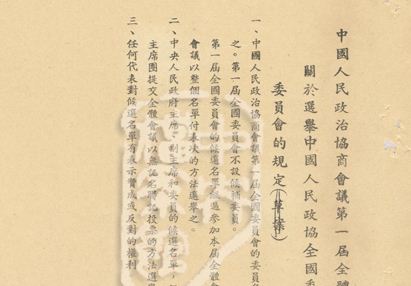 中國人民政治協商會議第一屆全體
關於選舉中國人民政協全國委
委員會的規定(草案)
一、中國人民政治協商會議第一屆全國委員會的委員名
之。第一屆全國委員會不設候補委員。
第一屆全國委員會的候選名單
參加本屆全體會
會議以整個名單付表決的方法選舉之。
二、中央人民政府主席、副主席和委員的候選名單,
主席團提交全體會議以無記名
投票的方法選舉
三、任何代表對候選名單有表示贊成或反對的權利